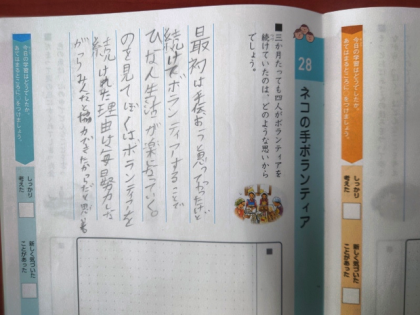 28
ネコの手ボランティア
■三か月たっても四人がボランティアを
続けていたのは、どのような思いから
でしょう。
最初は手伝おうと思ってなかったけど
続けてボランティアすることで
ひなん生活が楽になっていく。
のを見てぼくはボランティアを
続けれた理由は毎日努力しな
がらみんなと協力できたからだと思う
今日の学習はどうでしたか。
あてはまるところに、をつけましょう。
しっかり
考えた
新しく気づいた
ことがあった
今日の学習はどうでしたか。
あてはまるところに、をつけましょう。
しっかり
考えた
新しく気づいた
ことがあった